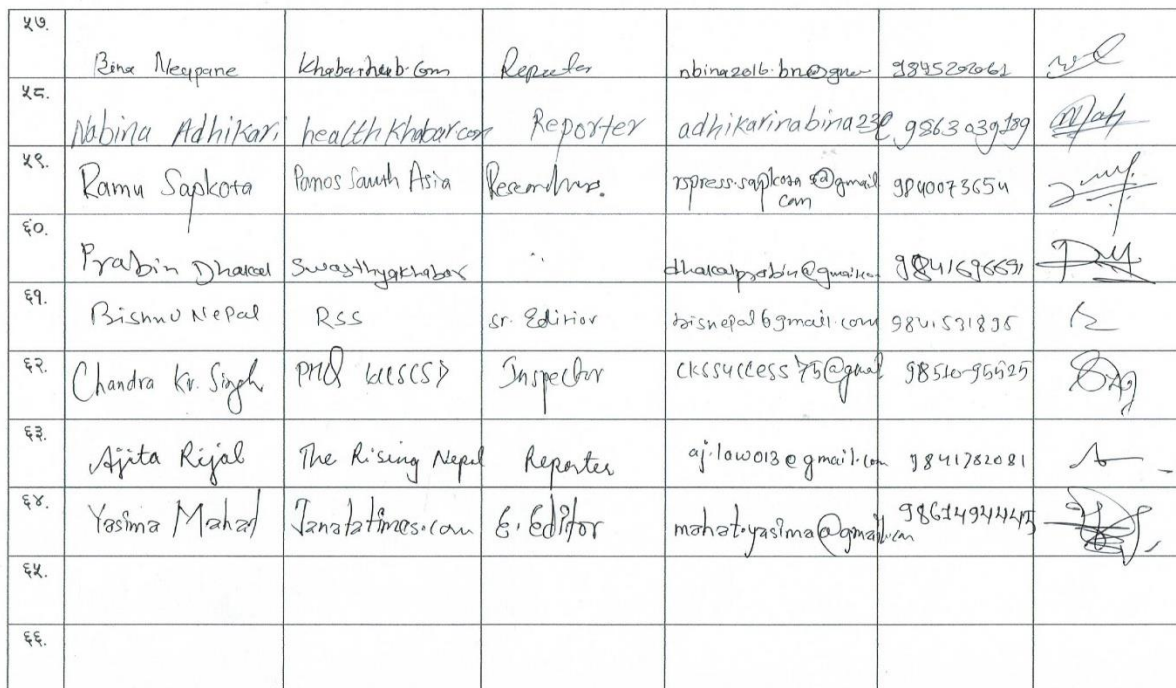 ५७.
Bina Neupane khabarhub.com Reporter nbina2016.bn@gma 9845202061
५८.
Nabina Adhikari healthkhabar.com Reporter adhikarinabina23@ 9863039189
५९.
Ramu Sapkota Panos South Asia rspress.sapkota@gmail 9840073654
com
६०.
Prabin Dhakal Swasthyakhabar " dhakalprabin@gmail.com 9841696691
६१.
Bishnu Nepal RSS sr. Editior bisnepal6gmail.com
६२.
Chandra Kr. Singh Inspector ckssuccess75@gmail
६३.
Ajita Rijal The Rising Nepal Reporter aj.law013@gmail.com 9841782081
६४.
Yasima Mahat Janatatimes.com E. Editor mahat.yasima@gmail.com 9861494445
६५.
६६.